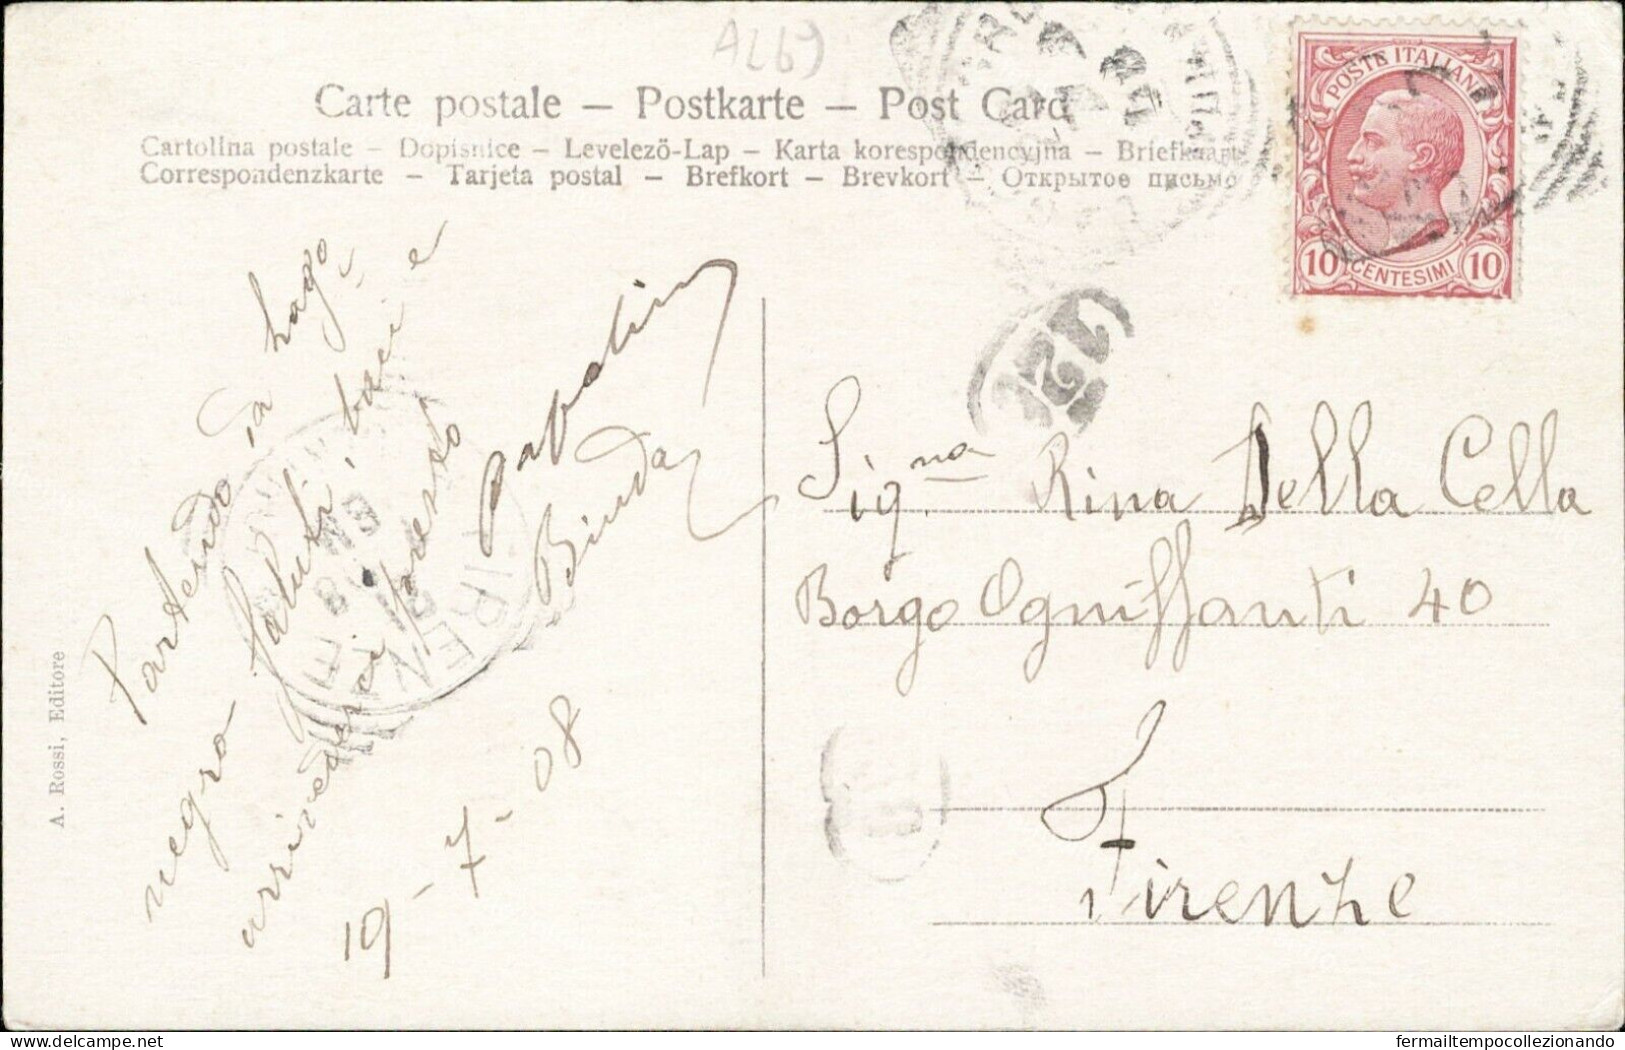 AL69
Carte postale – Postkarte – Post Card
Cartolina postale – Dopisnice – Levelezö-Lap – Karta korespondencyjna – Briefkaart
Correspondenzkarte – Tarjeta postal – Brefkort – Brevkort – Открытое письмо
POSTE ITALIANE
10 CENTESIMI 10
Partendo da lago
negro saluti baci e
arrivederci presto
Binda
19-7-08
FIRENZE
Sig.na Rina Della Cella
Borgo Ognissanti 40
Firenze
A. Rossi, Editore
fermailtempocollezionando